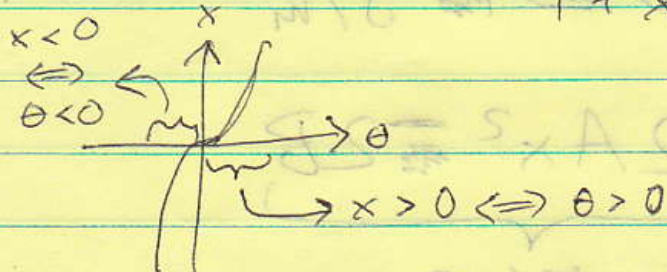 x
x < 0
⟺
θ < 0
θ
x > 0 ⟺ θ > 0